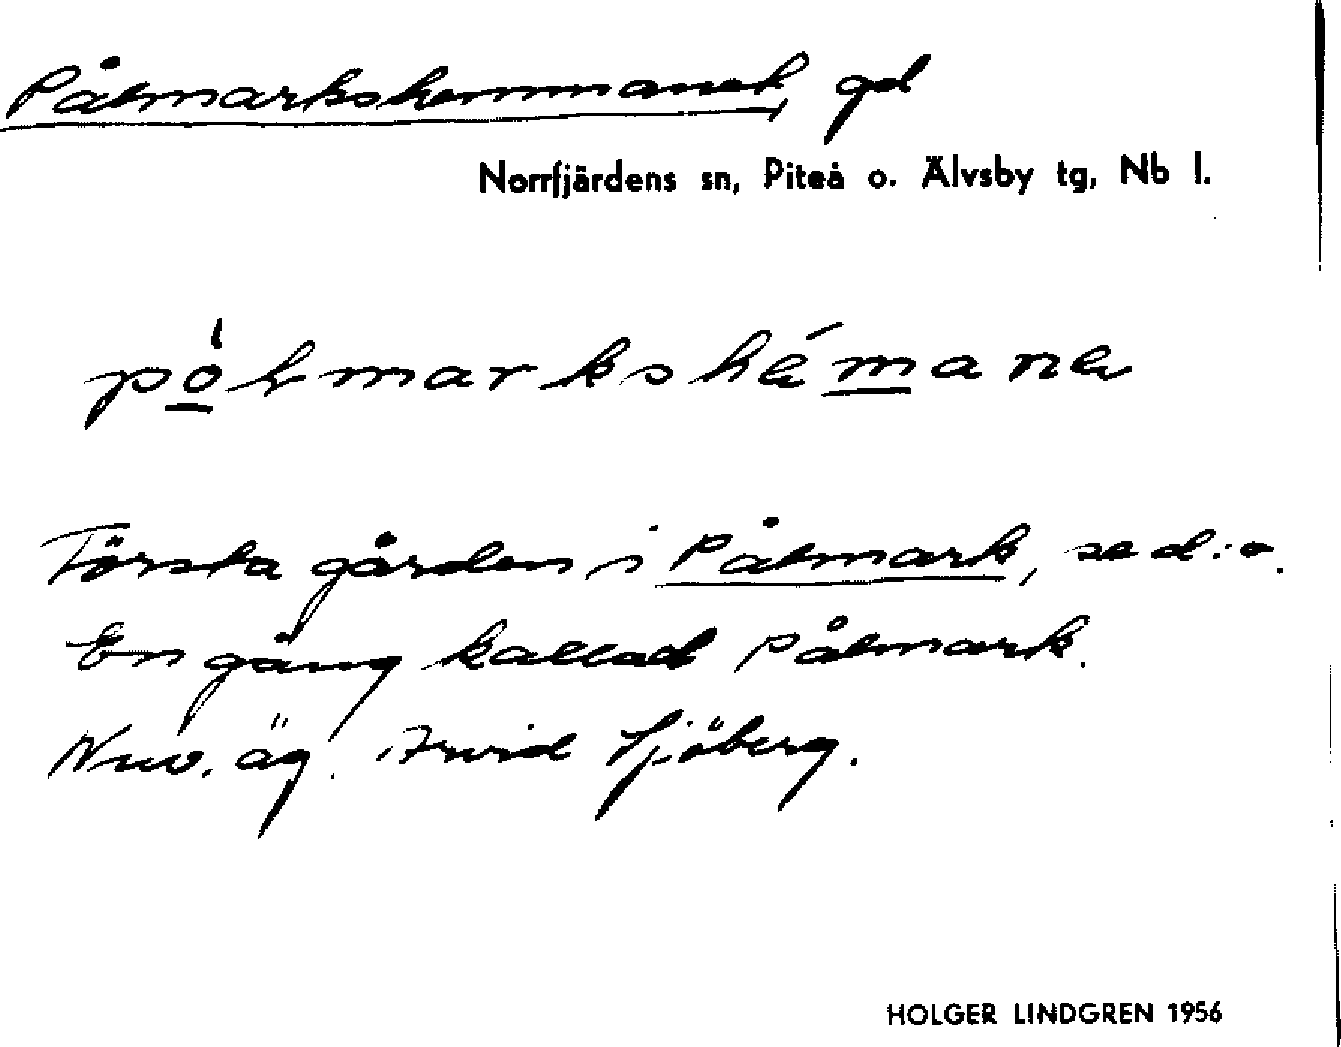 Pålmarkshemmanet, gd
Norrfjärdens sn, Piteå o. Älvsby tg, Nb l.
pólmarkshémana
Första gården i Pålmark, se d:o.
En gång kallad Pålmark.
Nuv. äg. Arvid Sjöberg.
HOLGER LINDGREN 1956